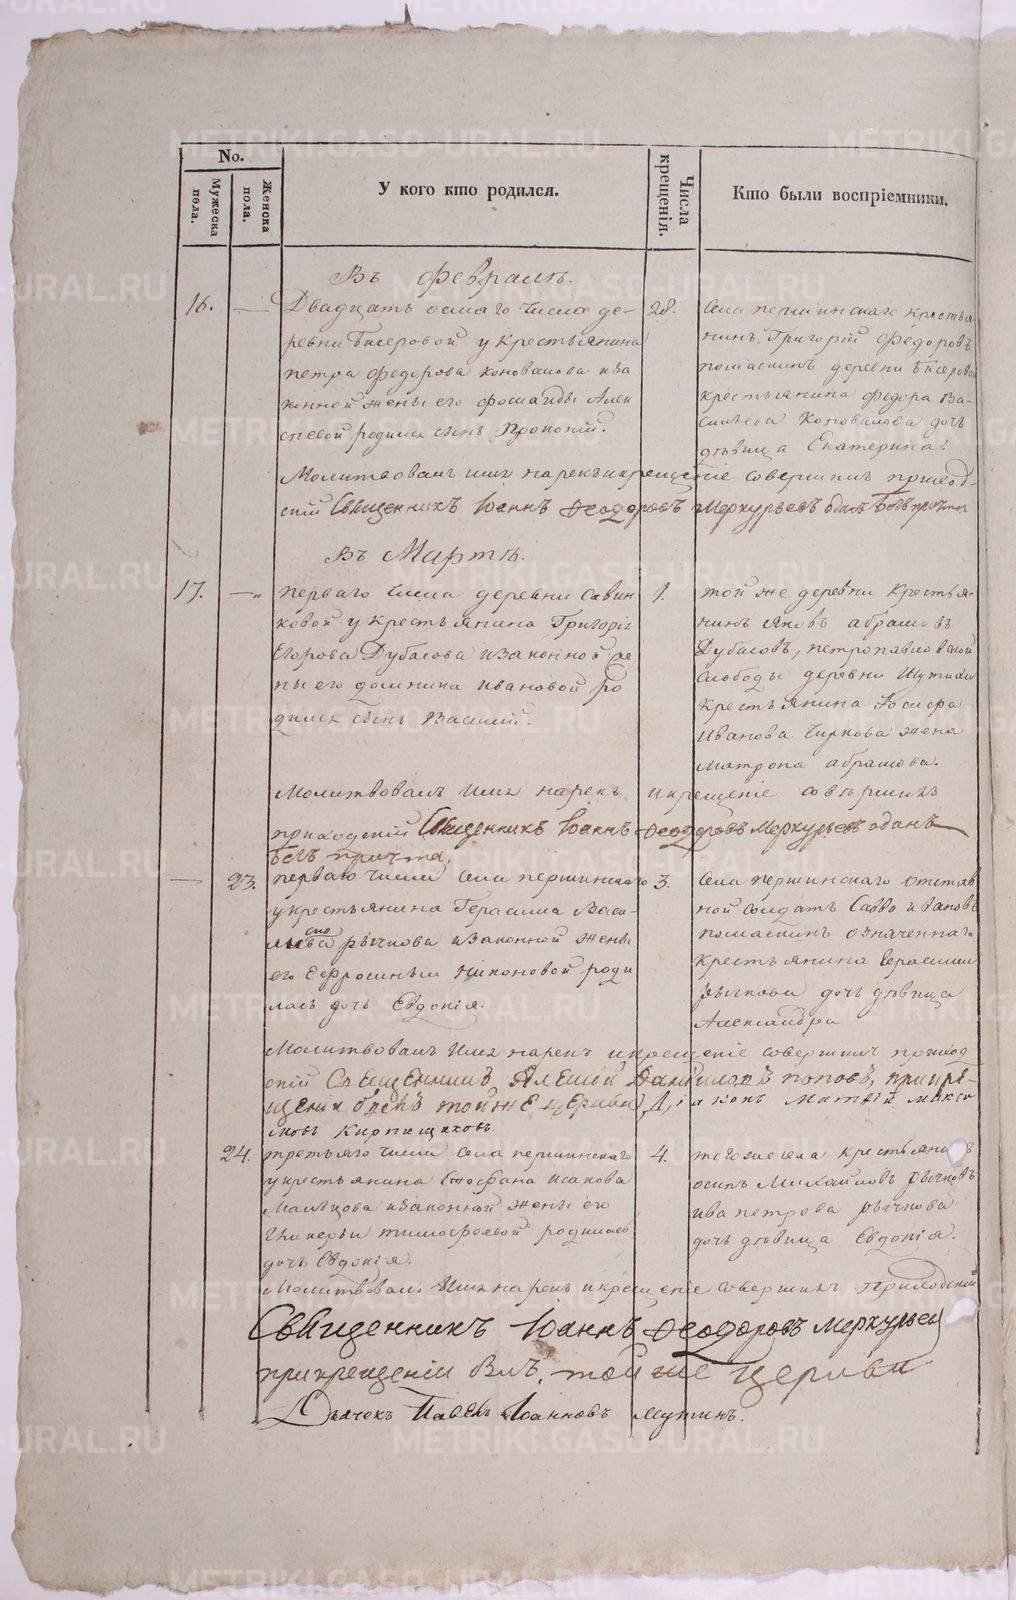 No.
Мужеска пола.
Женска пола.
У кого кто родился.
Числа крещенія.
Кто были воспріемники.
Въ Февралѣ.
16. Двадцать осмаго числа де-
ревни Бисеровой у крестьянина
петра федорова коновалова и за
конной жены его
родился сынъ Прокопій.
28.
Села першинскаго крестья-
нинъ, Григорій Федоровъ
деревни Бисеровой
крестьянина федора Ва-
сильева Коновалова дочь
дѣвица Екатерина.
Молитвовалъ имя нарекъ и крещеніе совершилъ приход-
скій Священникъ Іоаннъ Феодоровъ Меркурьевъ одинъ безъ причта
Въ Мартѣ.
17. перваго числа деревни Савин
ковой у крестьянина Григорія
Егорова Дубасова и законной же
ны его домники ивановой ро
дился сынъ Василій.
1.
той же деревни крестья-
нинъ яковъ абрамовъ
Дубасовъ, петропавловской
слободы деревни
крестьянина
Иванова Чиркова жена
матрона абрамова.
Молитвовалъ имя нарекъ и крещеніе совершилъ
приходскій Священникъ Іоаннъ Феодоровъ Меркурьевъ одинъ
безъ причта.
23. перваго числа села першинскаго
у крестьянина Герасима Васи-
льева рычкова и законной жены
его Ефросиньи никоновой роди
лась дочь Евдокія.
3.
Села першинскаго отстав
ной солдатъ Савва ивановъ
означеннаго
крестьянина герасима
рычкова дочь дѣвица
Александра
Молитвовалъ имя нарекъ и крещеніе совершилъ приход
скій Священникъ Алексій Даниловъ поповъ, при кре-
щеніи былъ той же церкви Діаконъ Матвій Макси
мовъ Кирпищиковъ.
24. третьяго числа села першинскаго
у крестьянина Стефана исакова
Мальцова и законной жены его
Гликерьи тимофеевой родилась
дочь Евдокія.
4.
тогоже села крестьянинъ
осипъ Михайловъ рычковъ
ива петрова рычкова
дочь дѣвица Евдокія.
Молитвовалъ имя нарекъ и крещеніе совершилъ Приходскій
Священникъ Іоаннъ Феодоровъ Меркурьевъ
при крещеніи былъ, той же церкви
Дьячекъ Павелъ Іоанновъ Мутинъ.
METRIKI.GASO-URAL.RU